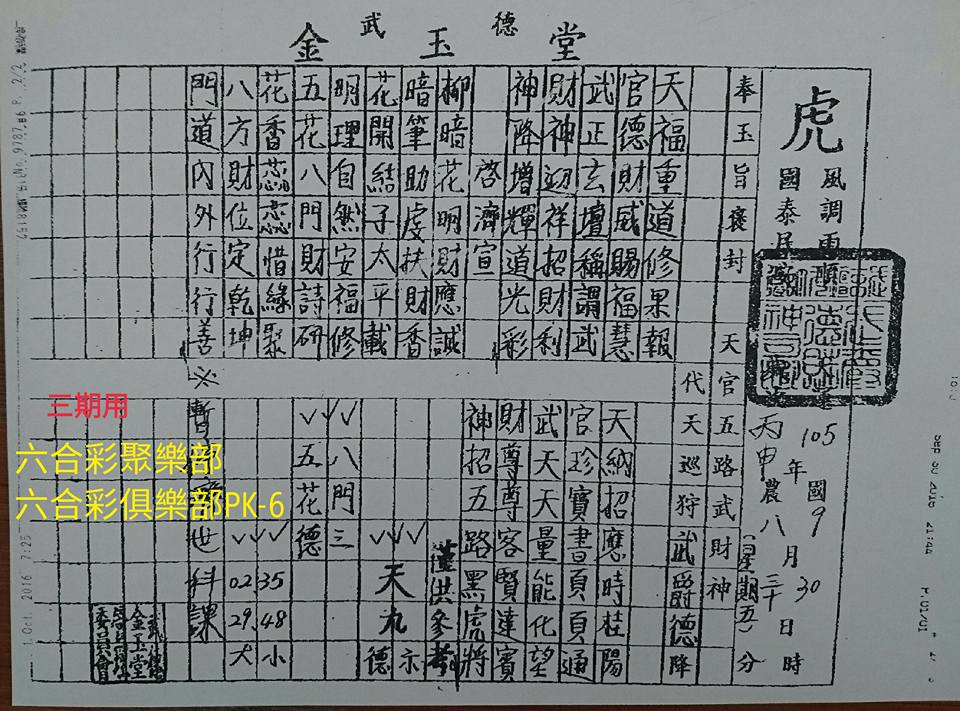 武德
金玉堂
虎
風調雨
國泰民
105 年 國 9 月 30 日 時
丙申 農 八 三十
(星期五) 分
奉玉旨褒封 天官五路武財神
代天巡狩武爵德降
天福重道修果報
官德財威賜福慧
武正玄壇稱謂武
財神廼祥招財利
神降增輝道光彩
啓濟宣
柳暗花明財應誠
暗筆助虔扶財香
花開結子太平載
明理自然安福修
五花八門財詩研
花香蕊戀惜緣聚
八方財位定乾坤
門道內外行行善
※
天納招應時桂陽
官珍寶書頁頁通
武天天量能化望
財尊尊客賢達賓
神招五路黑虎將
僅供參考
天九
示
德
八門三
五花德
35 48 小
02 29 大
世科課
金玉堂
委員會
三期用
六合彩聚樂部
六合彩俱樂部PK-6